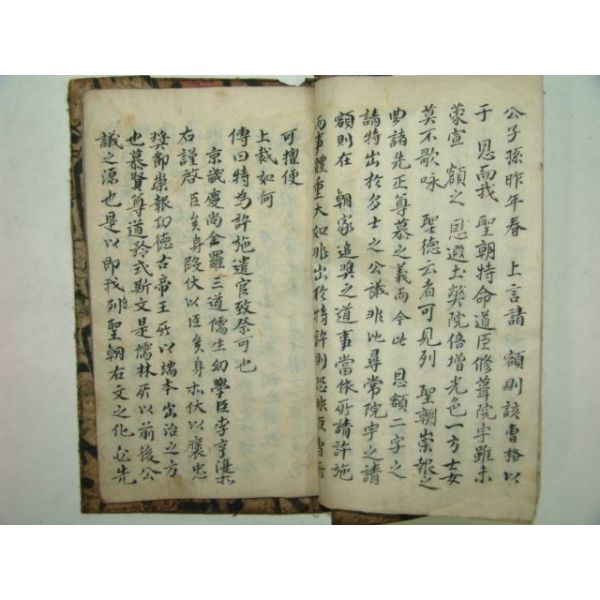 公子孫昨年春 上言請 額則該曹格以
于 恩而我 聖朝特命道臣修葺院宇雖未
蒙宣 額之 恩遐土熒院倍增光色一方士女
莫不歌咏 聖德云者可見列 聖朝崇報之
典諸先正尊慕之義而今此 恩額二字之
請特出於多士之公議非比尋常院宇之請
額則在 朝家追奬之道事當依所請許施
而事體重大如非出於特許則恐非臣曹所
可擅便
上裁如何
傳曰特爲許施遣官致祭可也
京畿慶尚全羅三道儒生幼學臣李亨湛等
右謹啓臣矣身段伏以臣矣身等伏以褒忠
獎節崇報功德古帝王所以端本出治之方
也慕賢尊道矜式斯文是儒林所以前後公
議之源也是以即我列聖朝右文之化必先